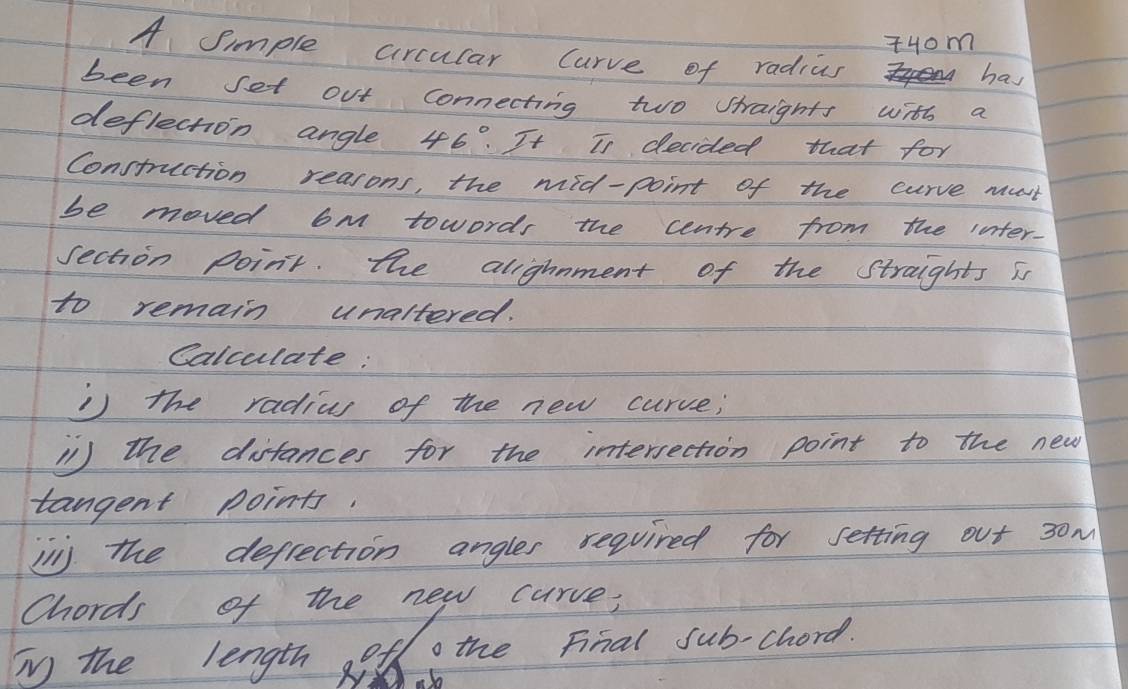 A Simple circular curve of radius 740m has
been set out connecting two straights with a
deflection angle 46°. It is decided that for
Construction reasons, the mid-point of the curve must
be moved 6m towords the centre from the inter-
section point. the alighnment of the straights is
to remain unaltered.
Calculate:
i) the radius of the new curve;
ii) the distances for the intersection point to the new
tangent points.
iii) the deflection angles required for setting out 30m
Chords of the new curve;
iv) the length of the Final sub-chord.